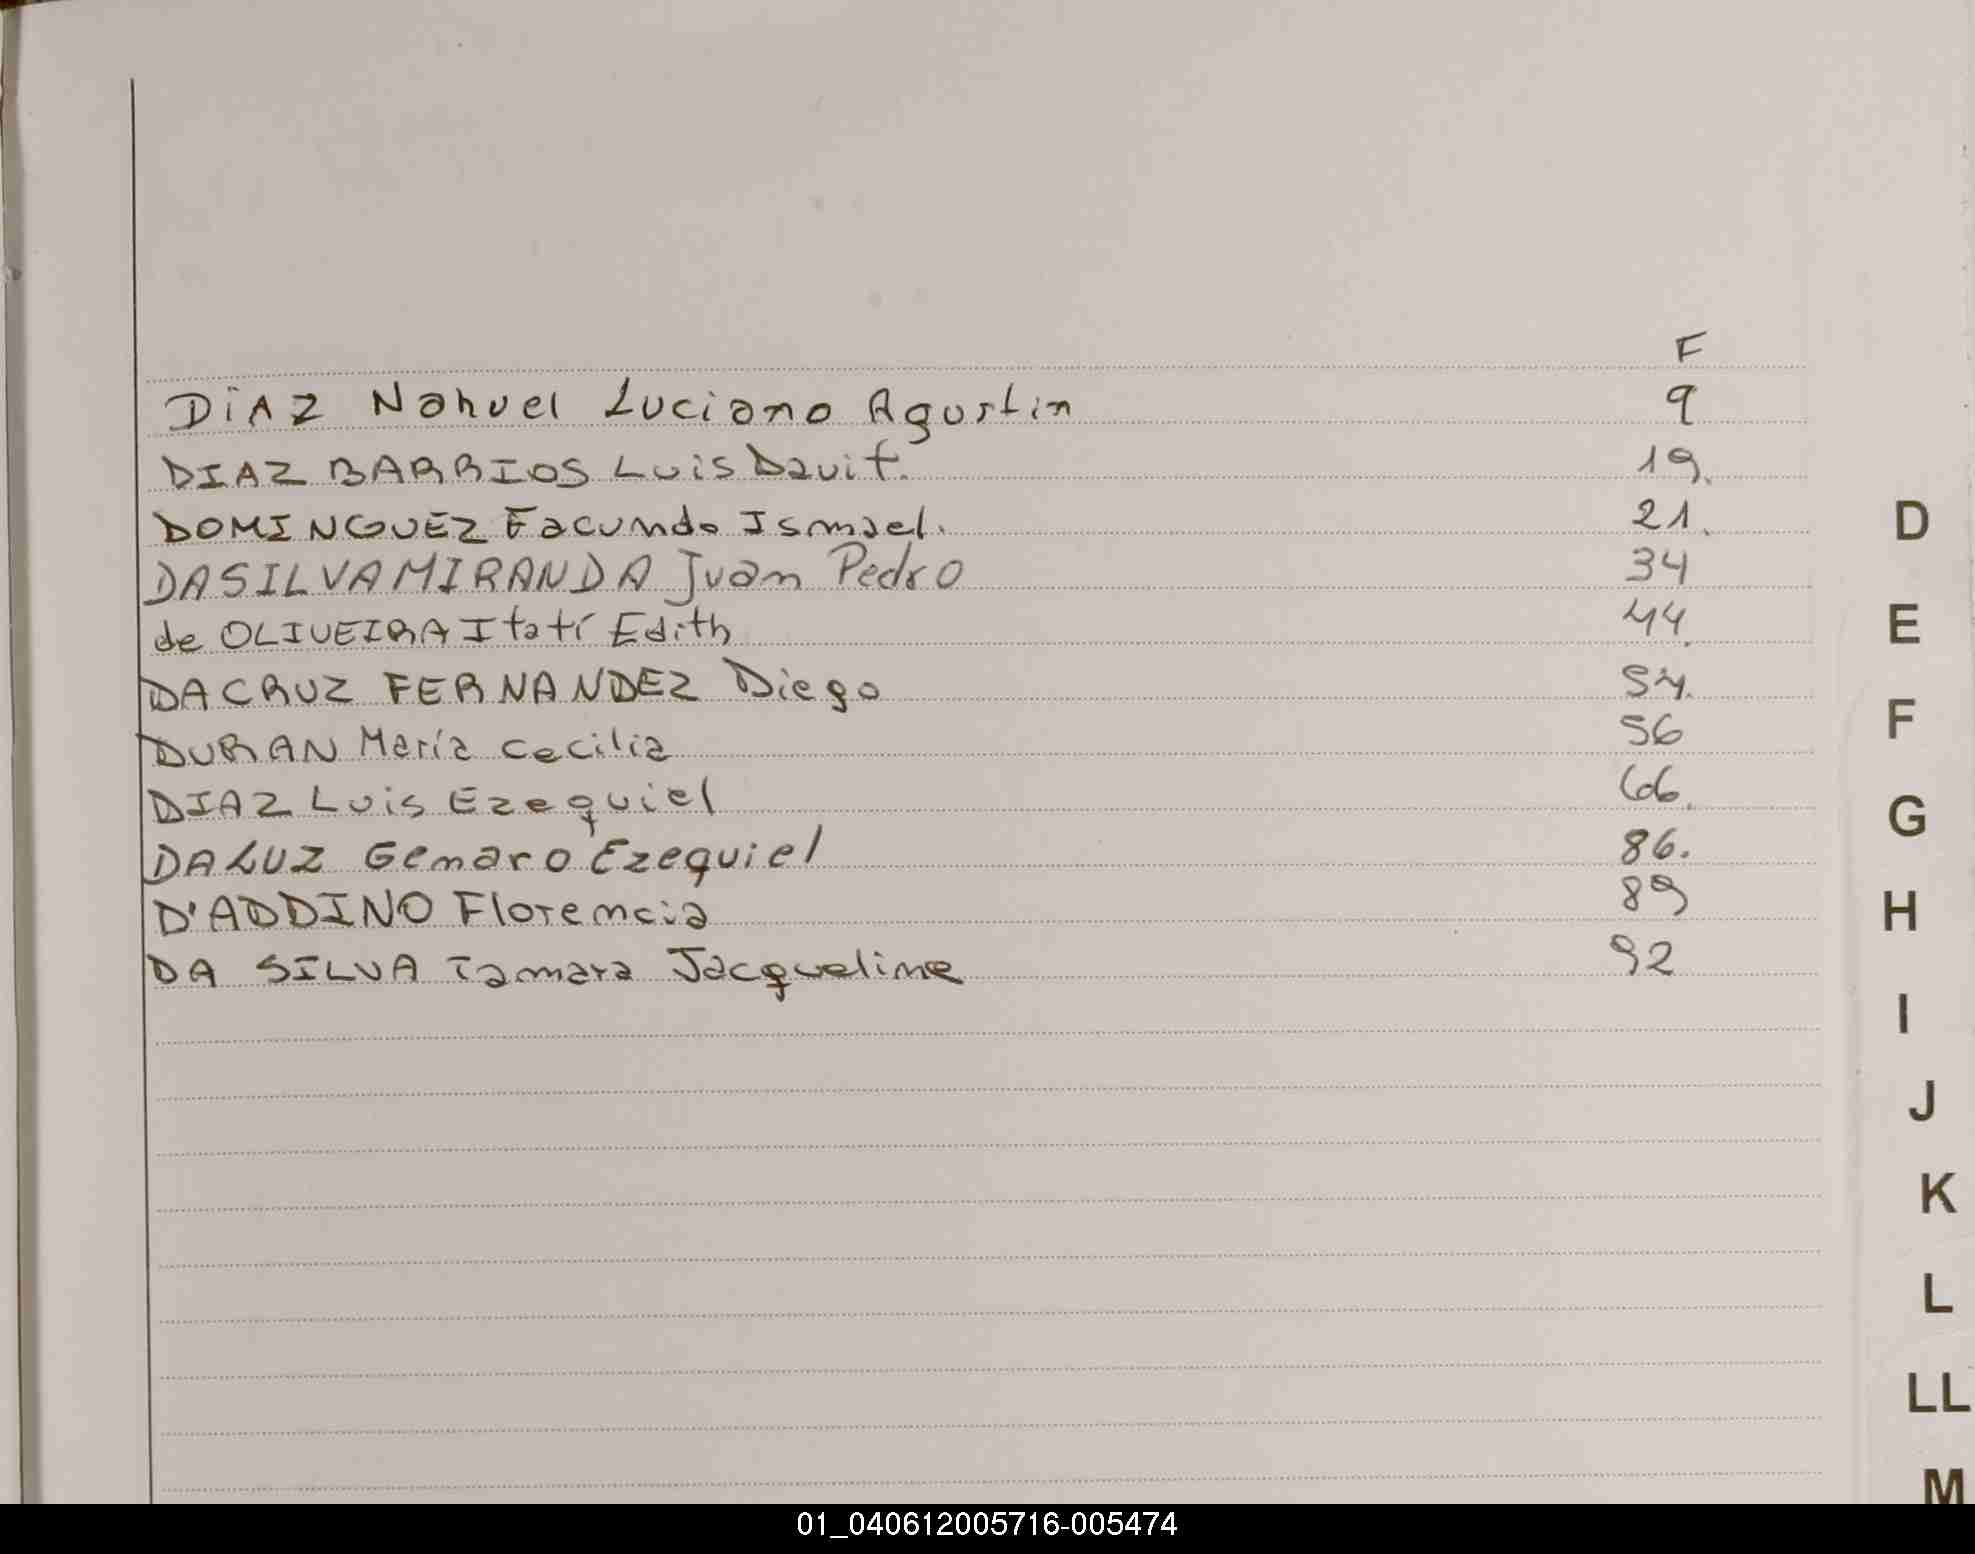 F
DiAZ Nahuel Luciano Agustin 9
DIAZ BARRIOS Luis Davit. 19.
DOMINGUEZ Facundo Ismael. 21.
DASILVA MIRANDA Juan Pedro 34
de OLIVEIRA Itatí Edith 44.
DACRUZ FERNANDEZ Diego 54.
DURAN María Cecilia 56
DIAZ Luis Ezequiel 66.
DALUZ Genaro Ezequiel 86.
D'ADDINO Florencia 89
DA SILVA Tamara Jacqueline 92
D
E
F
G
H
I
J
K
L
LL
M
01_040612005716-005474